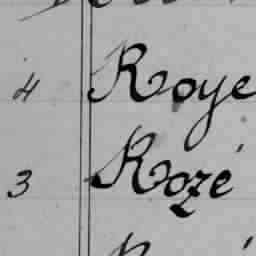 4 Roye
3 Rozé